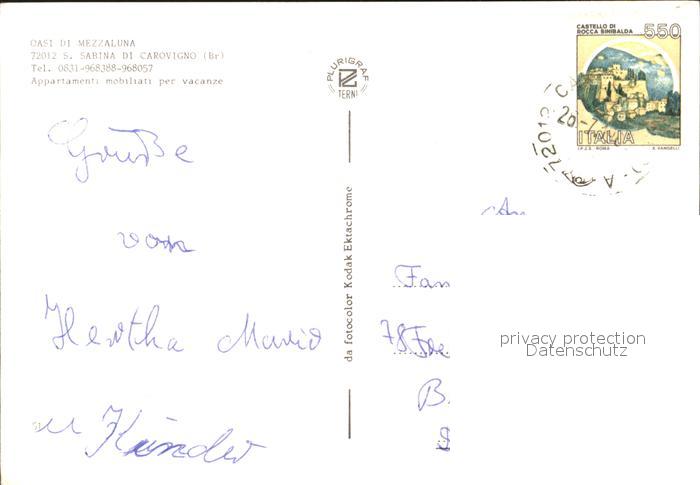 OASI DI MEZZALUNA
72012 S. SABINA DI CAROVIGNO (Br)
Tel. 0831-968388-968057
Appartamenti mobiliati per vacanze
PLURIGRAF
TERNI
CASTELLO DI
ROCCA SINIBALDA
550
ITALIA
I.P.Z.S. ROMA
E. VANGELLI
72012
Grüße
von
Hertha Mario
u Kinder
da fotocolor Kodak Ektachrome
An
Fam
78
B.
privacy protection
Datenschutz